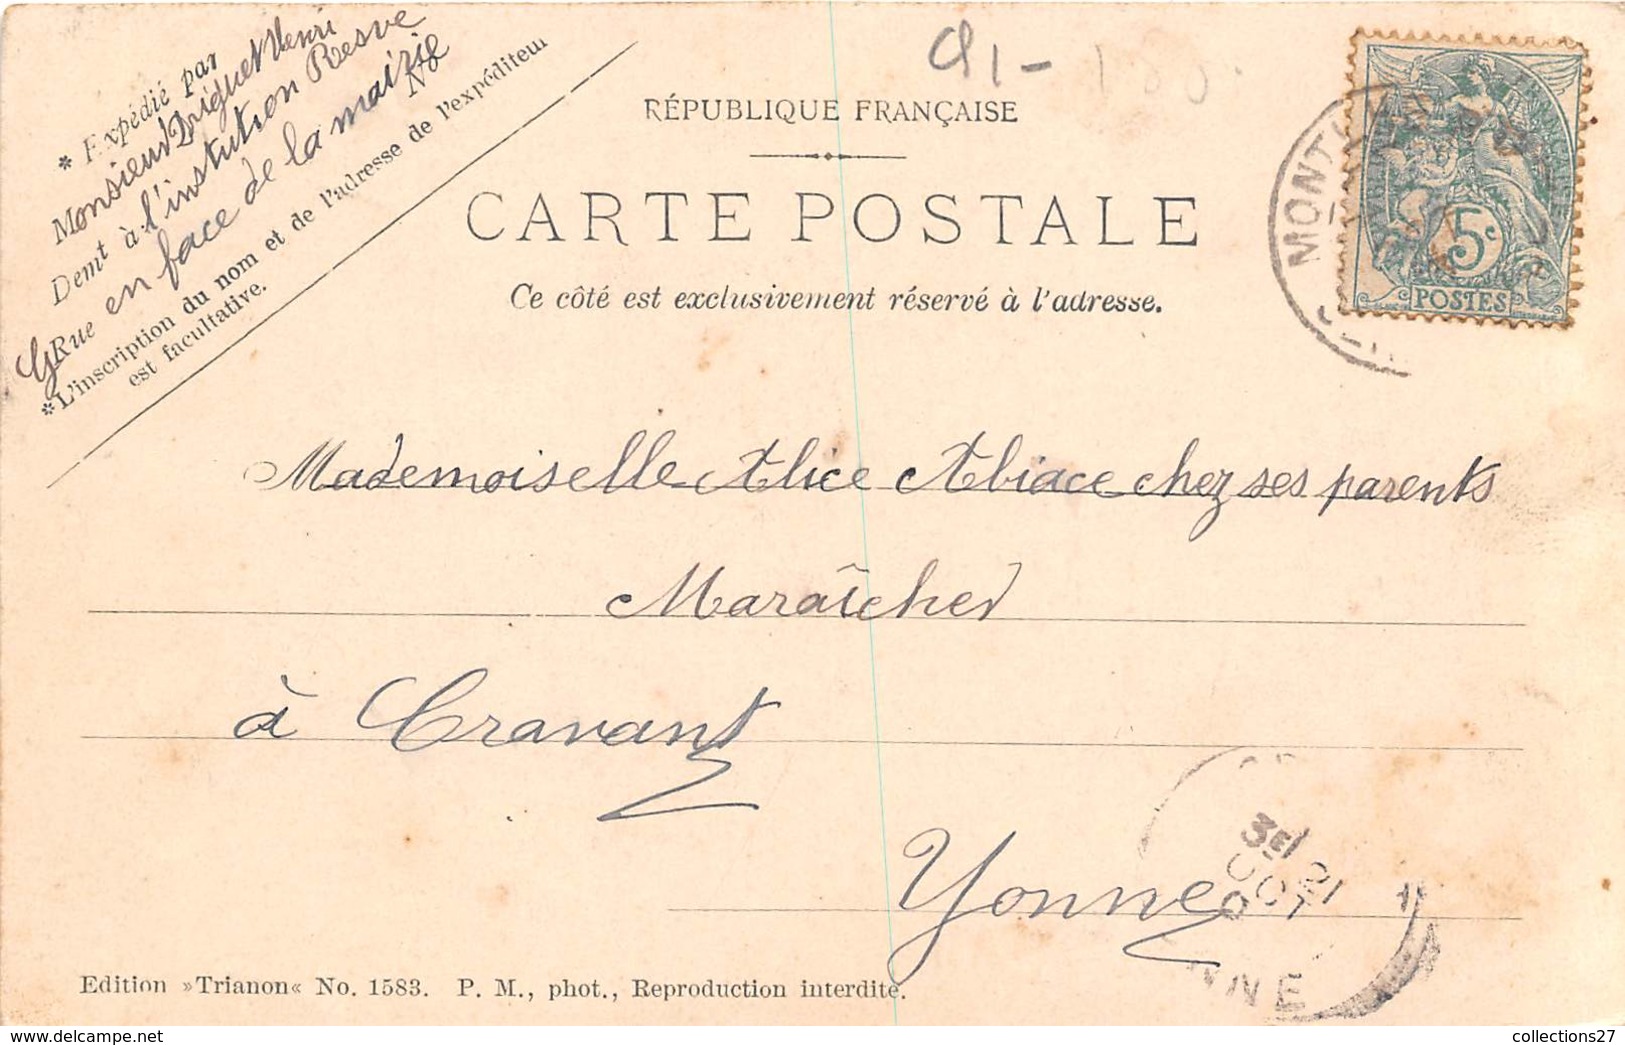 * Expédié par
Monsieur Driguet Henri
Demt à l'instution Resve
Rue en face de la mairie No
*L'inscription du nom et de l'adresse de l'expéditeur
est facultative.
91-
RÉPUBLIQUE FRANÇAISE
CARTE POSTALE
Ce côté est exclusivement réservé à l'adresse.
5c
POSTES
Mademoiselle Alice Abiace chez ses parents
Maraîcher
à Cravant
Yonne
3E
NNE
Edition »Trianon« No. 1583. P. M., phot., Reproduction interdite.
collections27